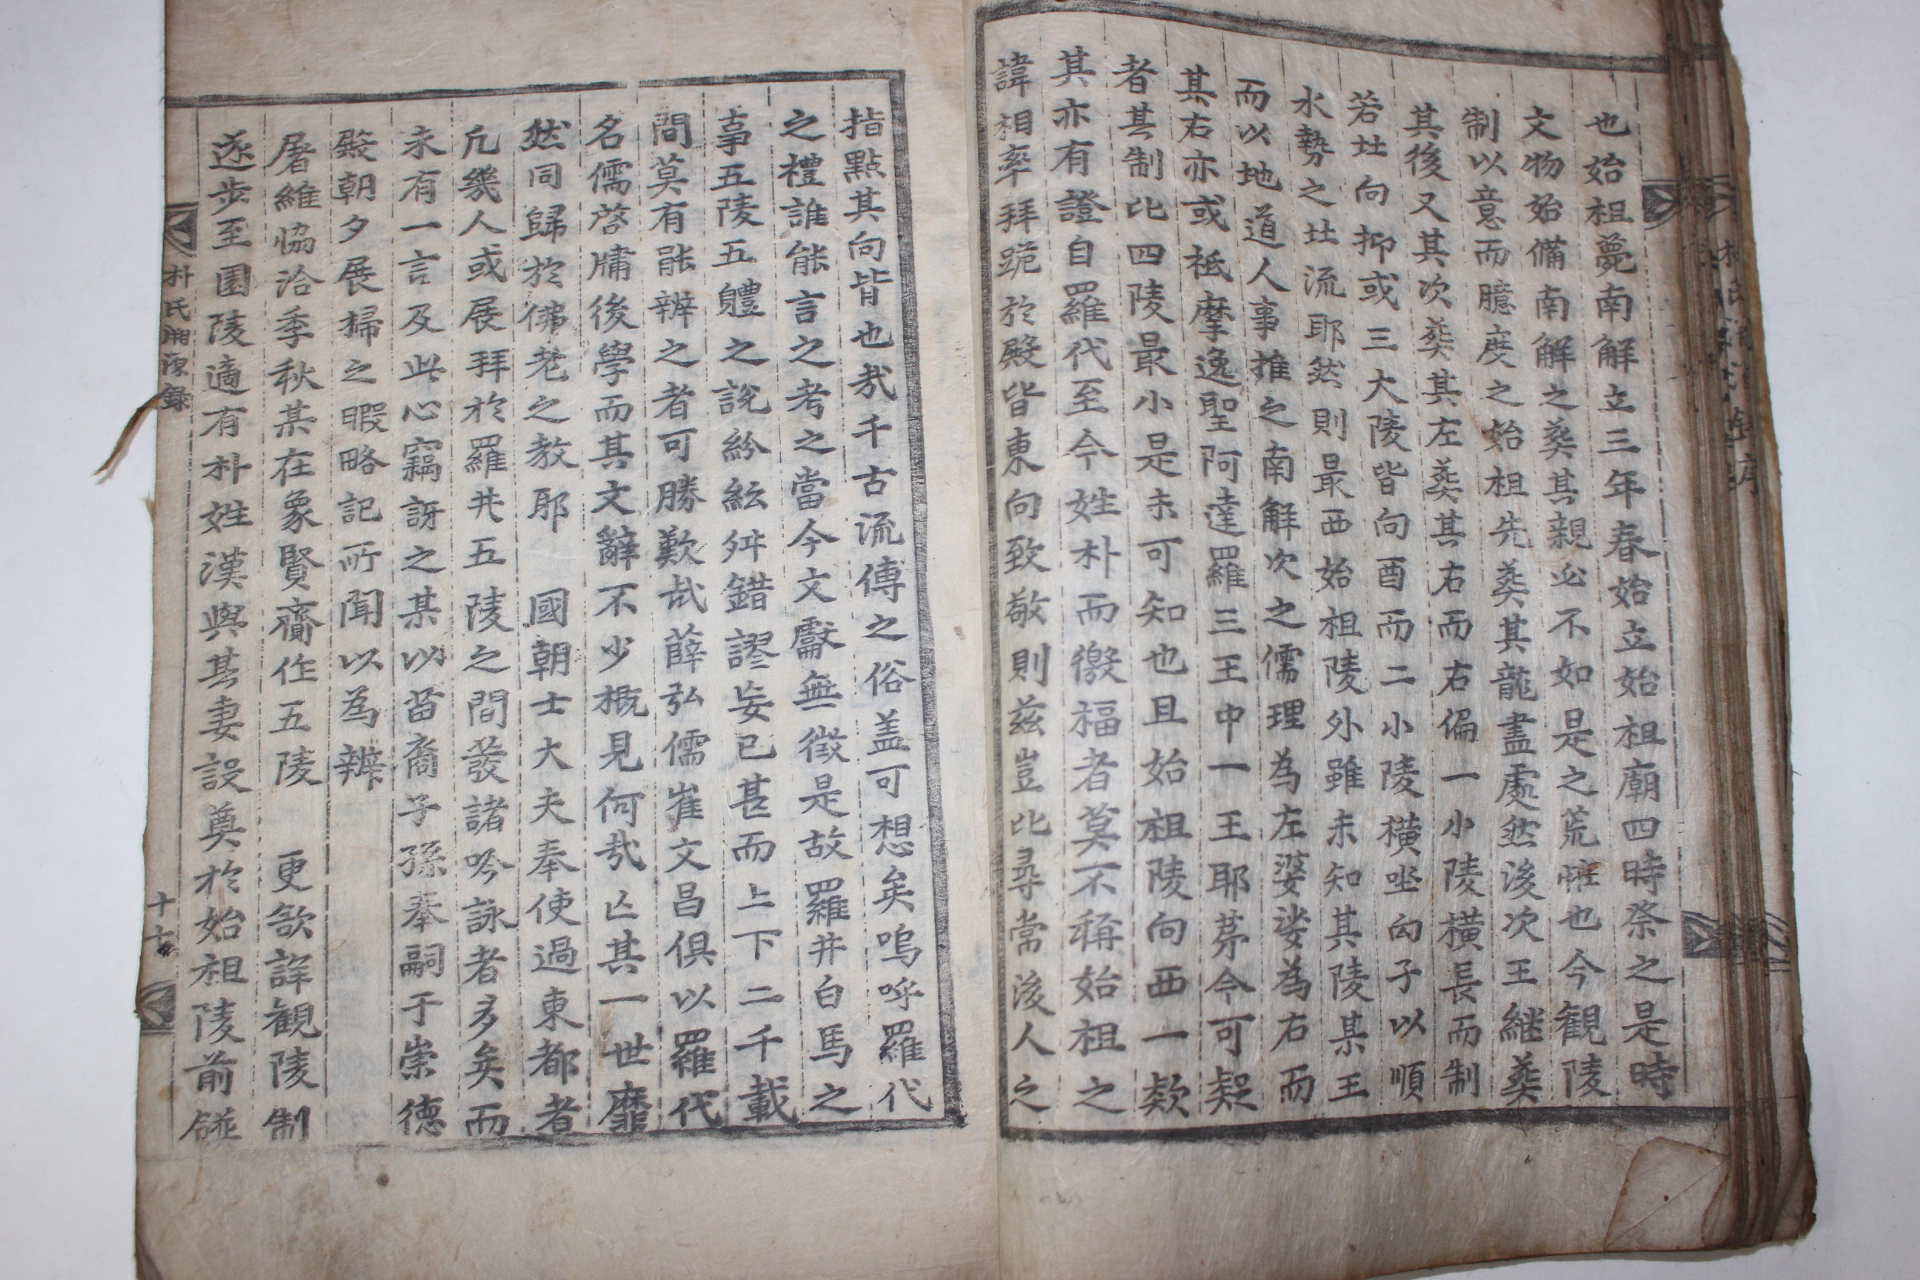 也始祖薨南解立三年春始立始祖廟四時祭之是時
文物始備南解之葬其親必不如是之荒懡也今観陵
制以意而臆度之始祖先葬其龍盡處然後次王継葬
其後又其次葬其左葬其右而右偏一小陵橫長而制
若㘴向抑或三大陵皆向酉而二小陵橫坐向子以順
水勢之㘴流耶然則最西始祖陵外雖未知其陵某王
而以地道人事推之南解次之儒理為左婆娑為右而
其右亦或祗摩逸聖阿達羅三王中一王耶茅今可疑
者其制比四陵最小是未可知也且始祖陵向西一款
其亦有證自羅代至今姓朴而徼福者莫不稱始祖之
諱相率拜跪於殿皆東向致敬則茲豈比尋常後人之
指點其向背也㢤千古流傳之俗盖可想矣嗚呼羅代
之禮誰能言之考之當今文獻無徵是故羅井白馬之
事五陵五軆之說紛紜舛錯謬妄已甚而上下二千載
間莫有能辨之者可勝歎㢤薛弘儒崔文昌俱以羅代
名儒啓牖後學而其文辭不少槪見何㢤亡其一世靡
然同歸於佛老之敎耶　國朝士大夫奉使過東都者
凢幾人或展拜於羅井五陵之間發諸吟詠者多矣而
未有一言及此心竊訝之某以苗裔子孫奉嗣于崇德
殿朝夕展掃之暇略記所聞以為辨
屠維恊洽季秋某在象賢齋作五陵　更欲詳観陵制
遂步至園陵適有朴姓漢與其妻設奠於始祖陵前
朴氏淵源錄
十七